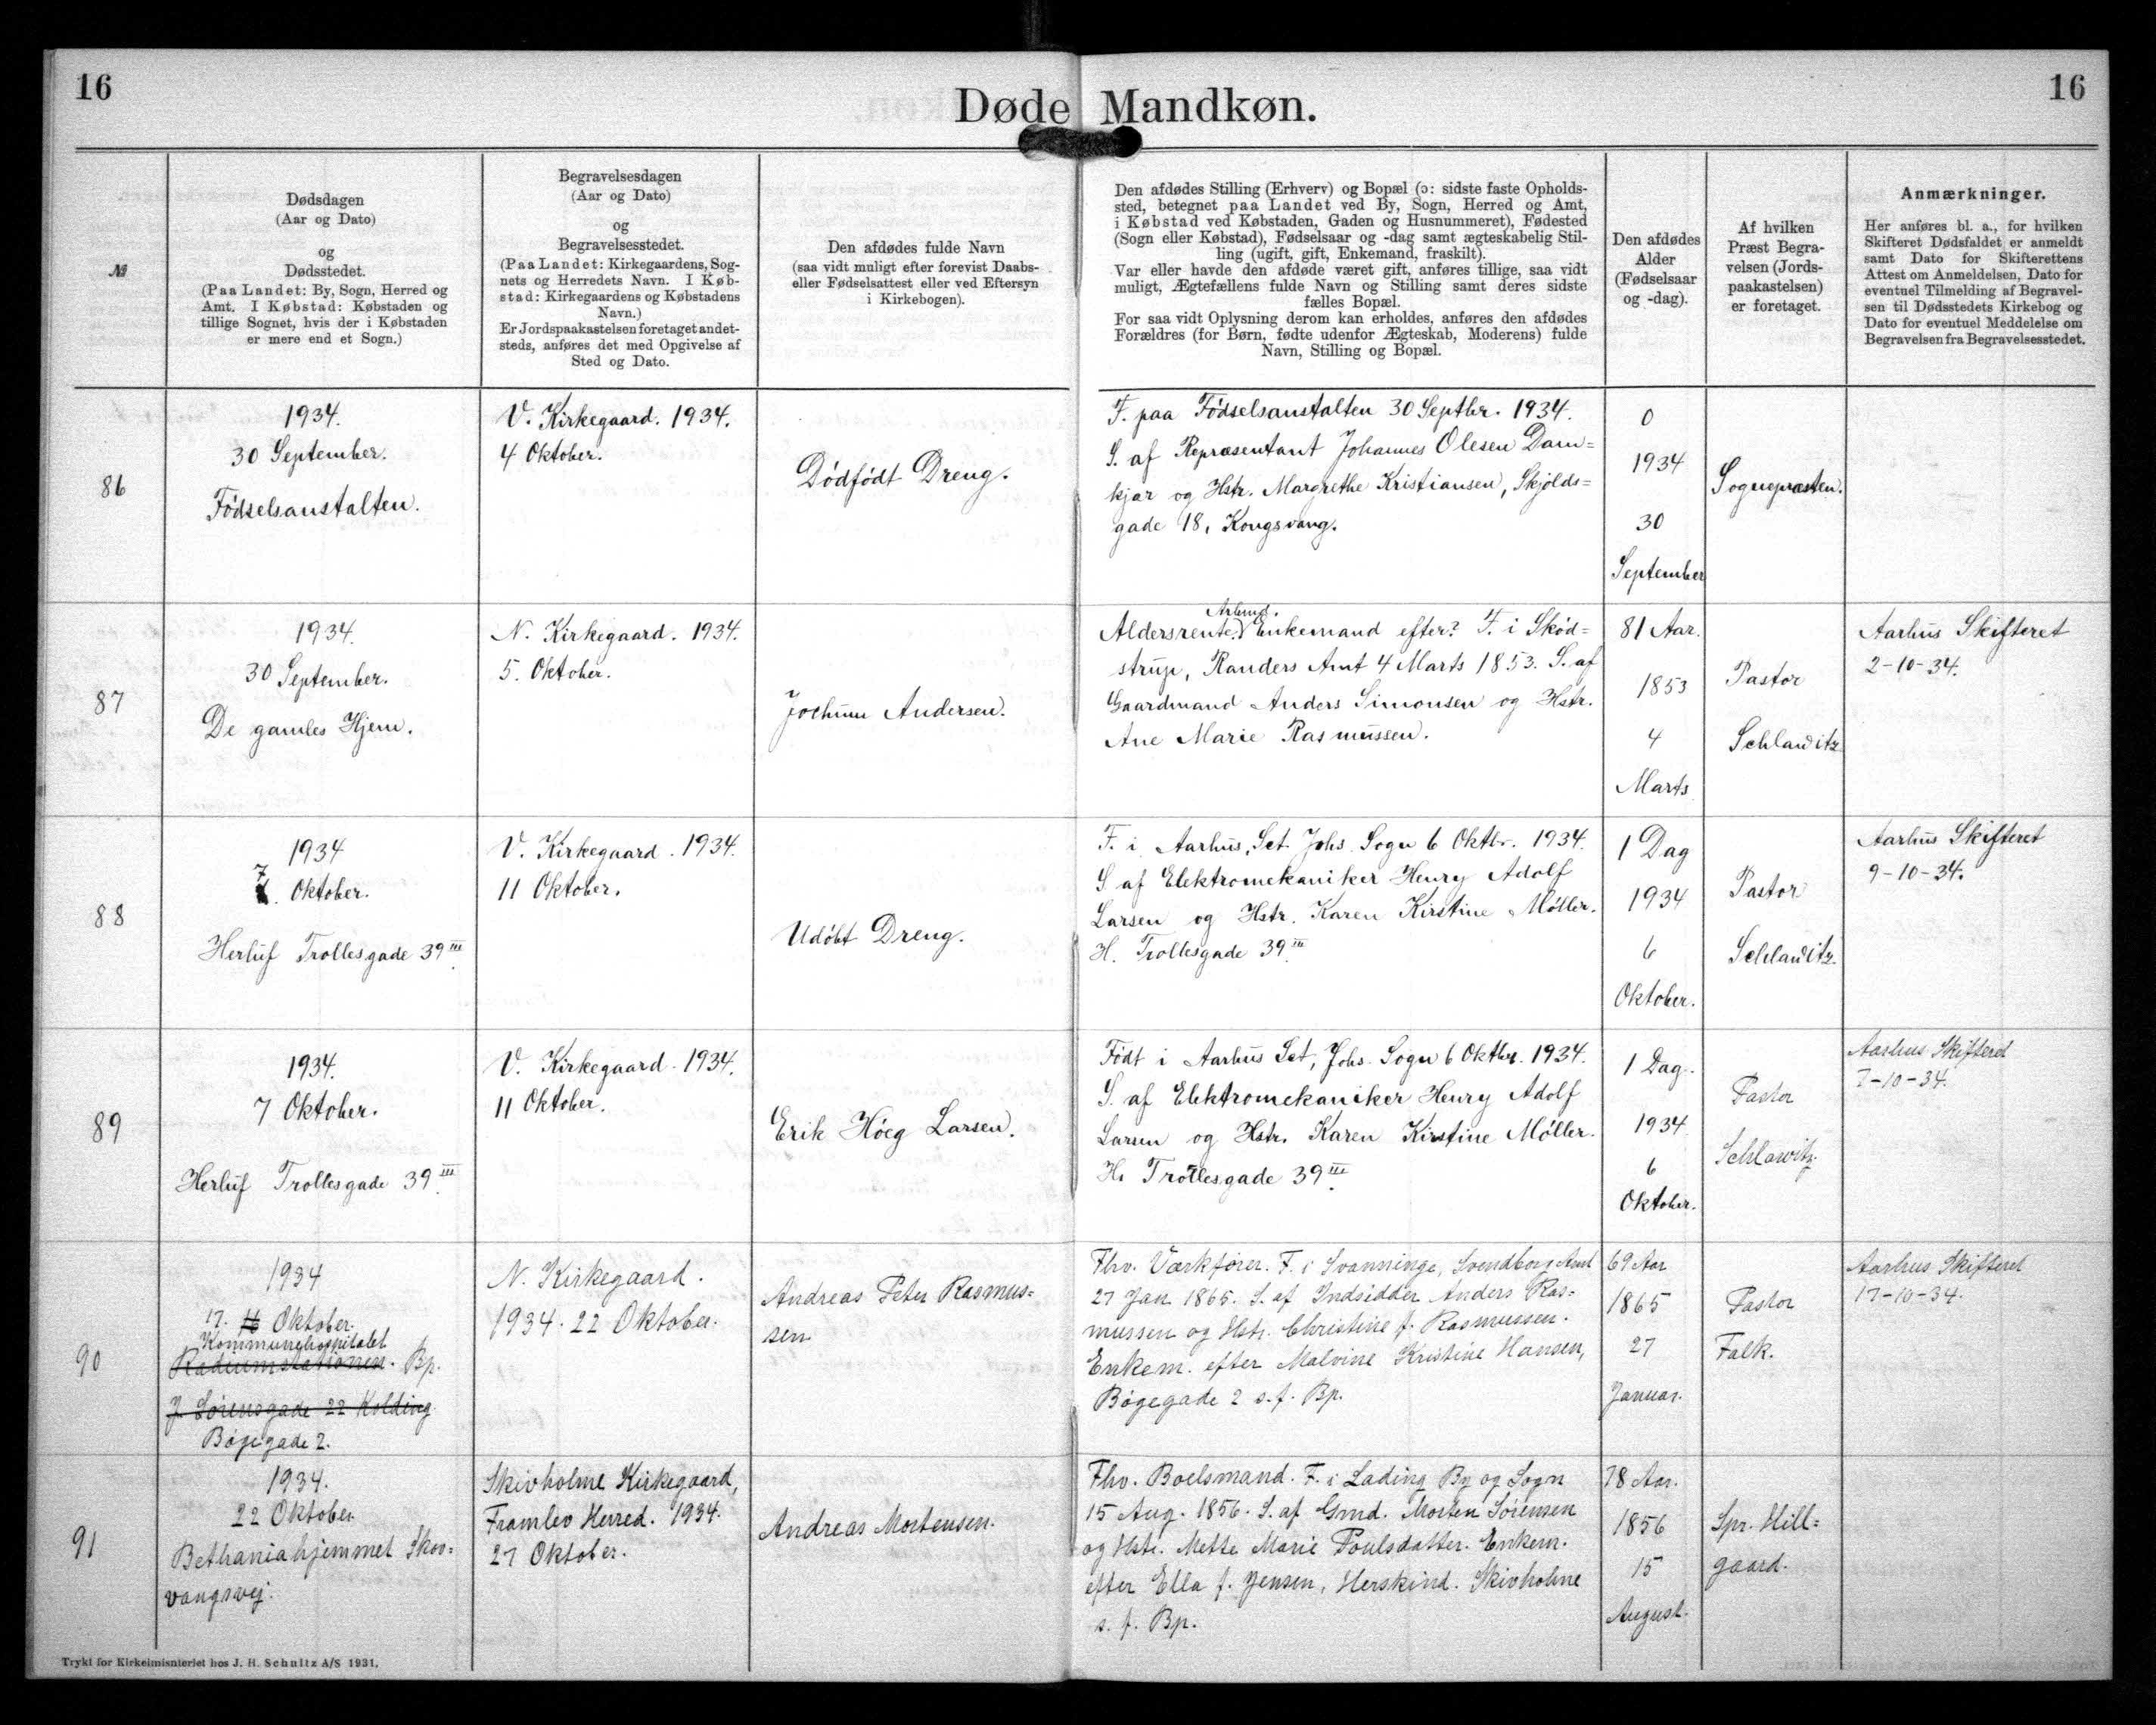 16
Døde Mandkøn.
16
№
Dødsdagen
(Aar og Dato)
og
Dødsstedet.
(Paa Landet: By, Sogn, Herred og
Amt. I Købstad: Købstaden og
tillige Sognet, hvis der i Købstaden
er mere end et Sogn.)
Begravelsesdagen
(Aar og Dato)
og
Begravelsesstedet.
(Paa Landet: Kirkegaardens, Sog-
nets og Herredets Navn. I Køb-
stad: Kirkegaardens og Købstadens
Navn.)
Er Jordspaakastelsen foretaget andet-
steds, anføres det med Opgivelse af
Sted og Dato.
Den afdødes fulde Navn
(saa vidt muligt efter forevist Daabs-
eller Fødselsattest eller ved Eftersyn
i Kirkebogen).
Den afdødes Stilling (Erhverv) og Bopæl (ɔ: sidste faste Opholds-
sted, betegnet paa Landet ved By, Sogn, Herred og Amt,
i Købstad ved Købstaden, Gaden og Husnummeret), Fødested
(Sogn eller Købstad), Fødselsaar og -dag samt ægteskabelig Stil-
ling (ugift, gift, Enkemand, fraskilt).
Var eller havde den afdøde været gift, anføres tillige, saa vidt
muligt, Ægtefællens fulde Navn og Stilling samt deres sidste
fælles Bopæl.
For saa vidt Oplysning derom kan erholdes, anføres den afdødes
Forældres (for Børn, fødte udenfor Ægteskab, Moderens) fulde
Navn, Stilling og Bopæl.
Den afdødes
Alder
(Fødselsaar
og -dag).
Af hvilken
Præst Begra-
velsen (Jords-
paakastelsen)
er foretaget.
Anmærkninger.
Her anføres bl. a., for hvilken
Skifteret Dødsfaldet er anmeldt
samt Dato for Skifterettens
Attest om Anmeldelsen, Dato for
eventuel Tilmelding af Begravel-
sen til Dødsstedets Kirkebog og
Dato for eventuel Meddelelse om
Begravelsen fra Begravelsesstedet.
86
1934.
30 September.
Fødselsanstalten.
V. Kirkegaard. 1934.
4 Oktober.
Dødfødt Dreng.
F. paa Fødselsanstalten 30 Septbr. 1934.
S. af Repræsentant Johannes Olesen Dam=
kjær og Hstr. Margrethe Kristiansen, Skjolds=
gade 18, Kongsvang.
0
1934
30
September
Sognepræsten.
87
1934.
30 September.
De gamles Hjem.
N. Kirkegaard. 1934.
5. Oktober.
Jochum Andersen.
Arbmd.
Aldersrente, Enkemand efter? F. i Skød=
strup, Randers Amt 4 Marts 1853. S. af
Gaardmand Anders Simonsen og Hstr.
Ane Marie Rasmussen.
81 Aar.
1853
4
Marts
Pastor
Schlawitz
Aarhus Skifteret
2-10-34.
88
1934
7
. Oktober.
Herluf Trollesgade 39 III.
V. Kirkegaard. 1934.
11 Oktober.
Udøbt Dreng.
F. i Aarhus, Sct. Johs. Sogn 6 Oktbr. 1934.
S. af Elektromekaniker Henry Adolf
Larsen og Hstr. Karen Kirstine Møller.
H. Trollesgade 39 III.
1 Dag
1934
6
Oktober.
Pastor
Schlawitz.
Aarhus Skifteret
9-10-34.
89
1934.
7 Oktober.
Herluf Trollesgade 39 III.
V. Kirkegaard. 1934.
11 Oktober.
Erik Høeg Larsen.
Født i Aarhus Sct, Johs. Sogn 6 Oktbr. 1934.
S. af Elektromekaniker Henry Adolf
Larsen og Hstr. Karen Kirstine Møller.
H. Trollesgade 39 III.
1 Dag.
1934
6
Oktober.
Pastor
Schlawitz.
Aarhus Skifteret
7-10-34.
90
1934
17. 16 Oktober.
Kommunehospitalet
Radiumstationen. Bp.
J. Sørensgade 22 Kolding.
Bøgegade 2.
N. Kirkegaard.
1934. 22 Oktober.
Andreas Peter Rasmus=
sen
Fhv. Værkfører. F. i Svanninge, Svendborg Amt
27 Jan 1865. S. af Indsidder Anders Ras=
mussen og Hstr. Christine f. Rasmussen.
Enkem. efter Malvine Kristine Hansen,
Bøgegade 2 s. f. Bp.
69 Aar
1865
27
Januar.
Pastor
Falk.
Aarhus Skifteret
17-10-34.
91
1934.
22 Oktober
Bethaniahjemmet Skov=
vangsvej.
Skivholme Kirkegaard,
Framlev Herred. 1934.
27 Oktober.
Andreas Mortensen.
Fhv. Boelsmand. F. i Lading By og Sogn
15 Aug. 1856. S. af Gmd. Morten Sørensen
og Hstr. Mette Marie Poulsdatter. Enkem.
efter Ella f. Jensen, Herskind. Skivholme
s. f. Bp.
78 Aar.
1856
15
August.
Spr. Hill=
gaard.
Trykt for Kirkeimisnteriet hos J. H. Schultz A/S 1931.